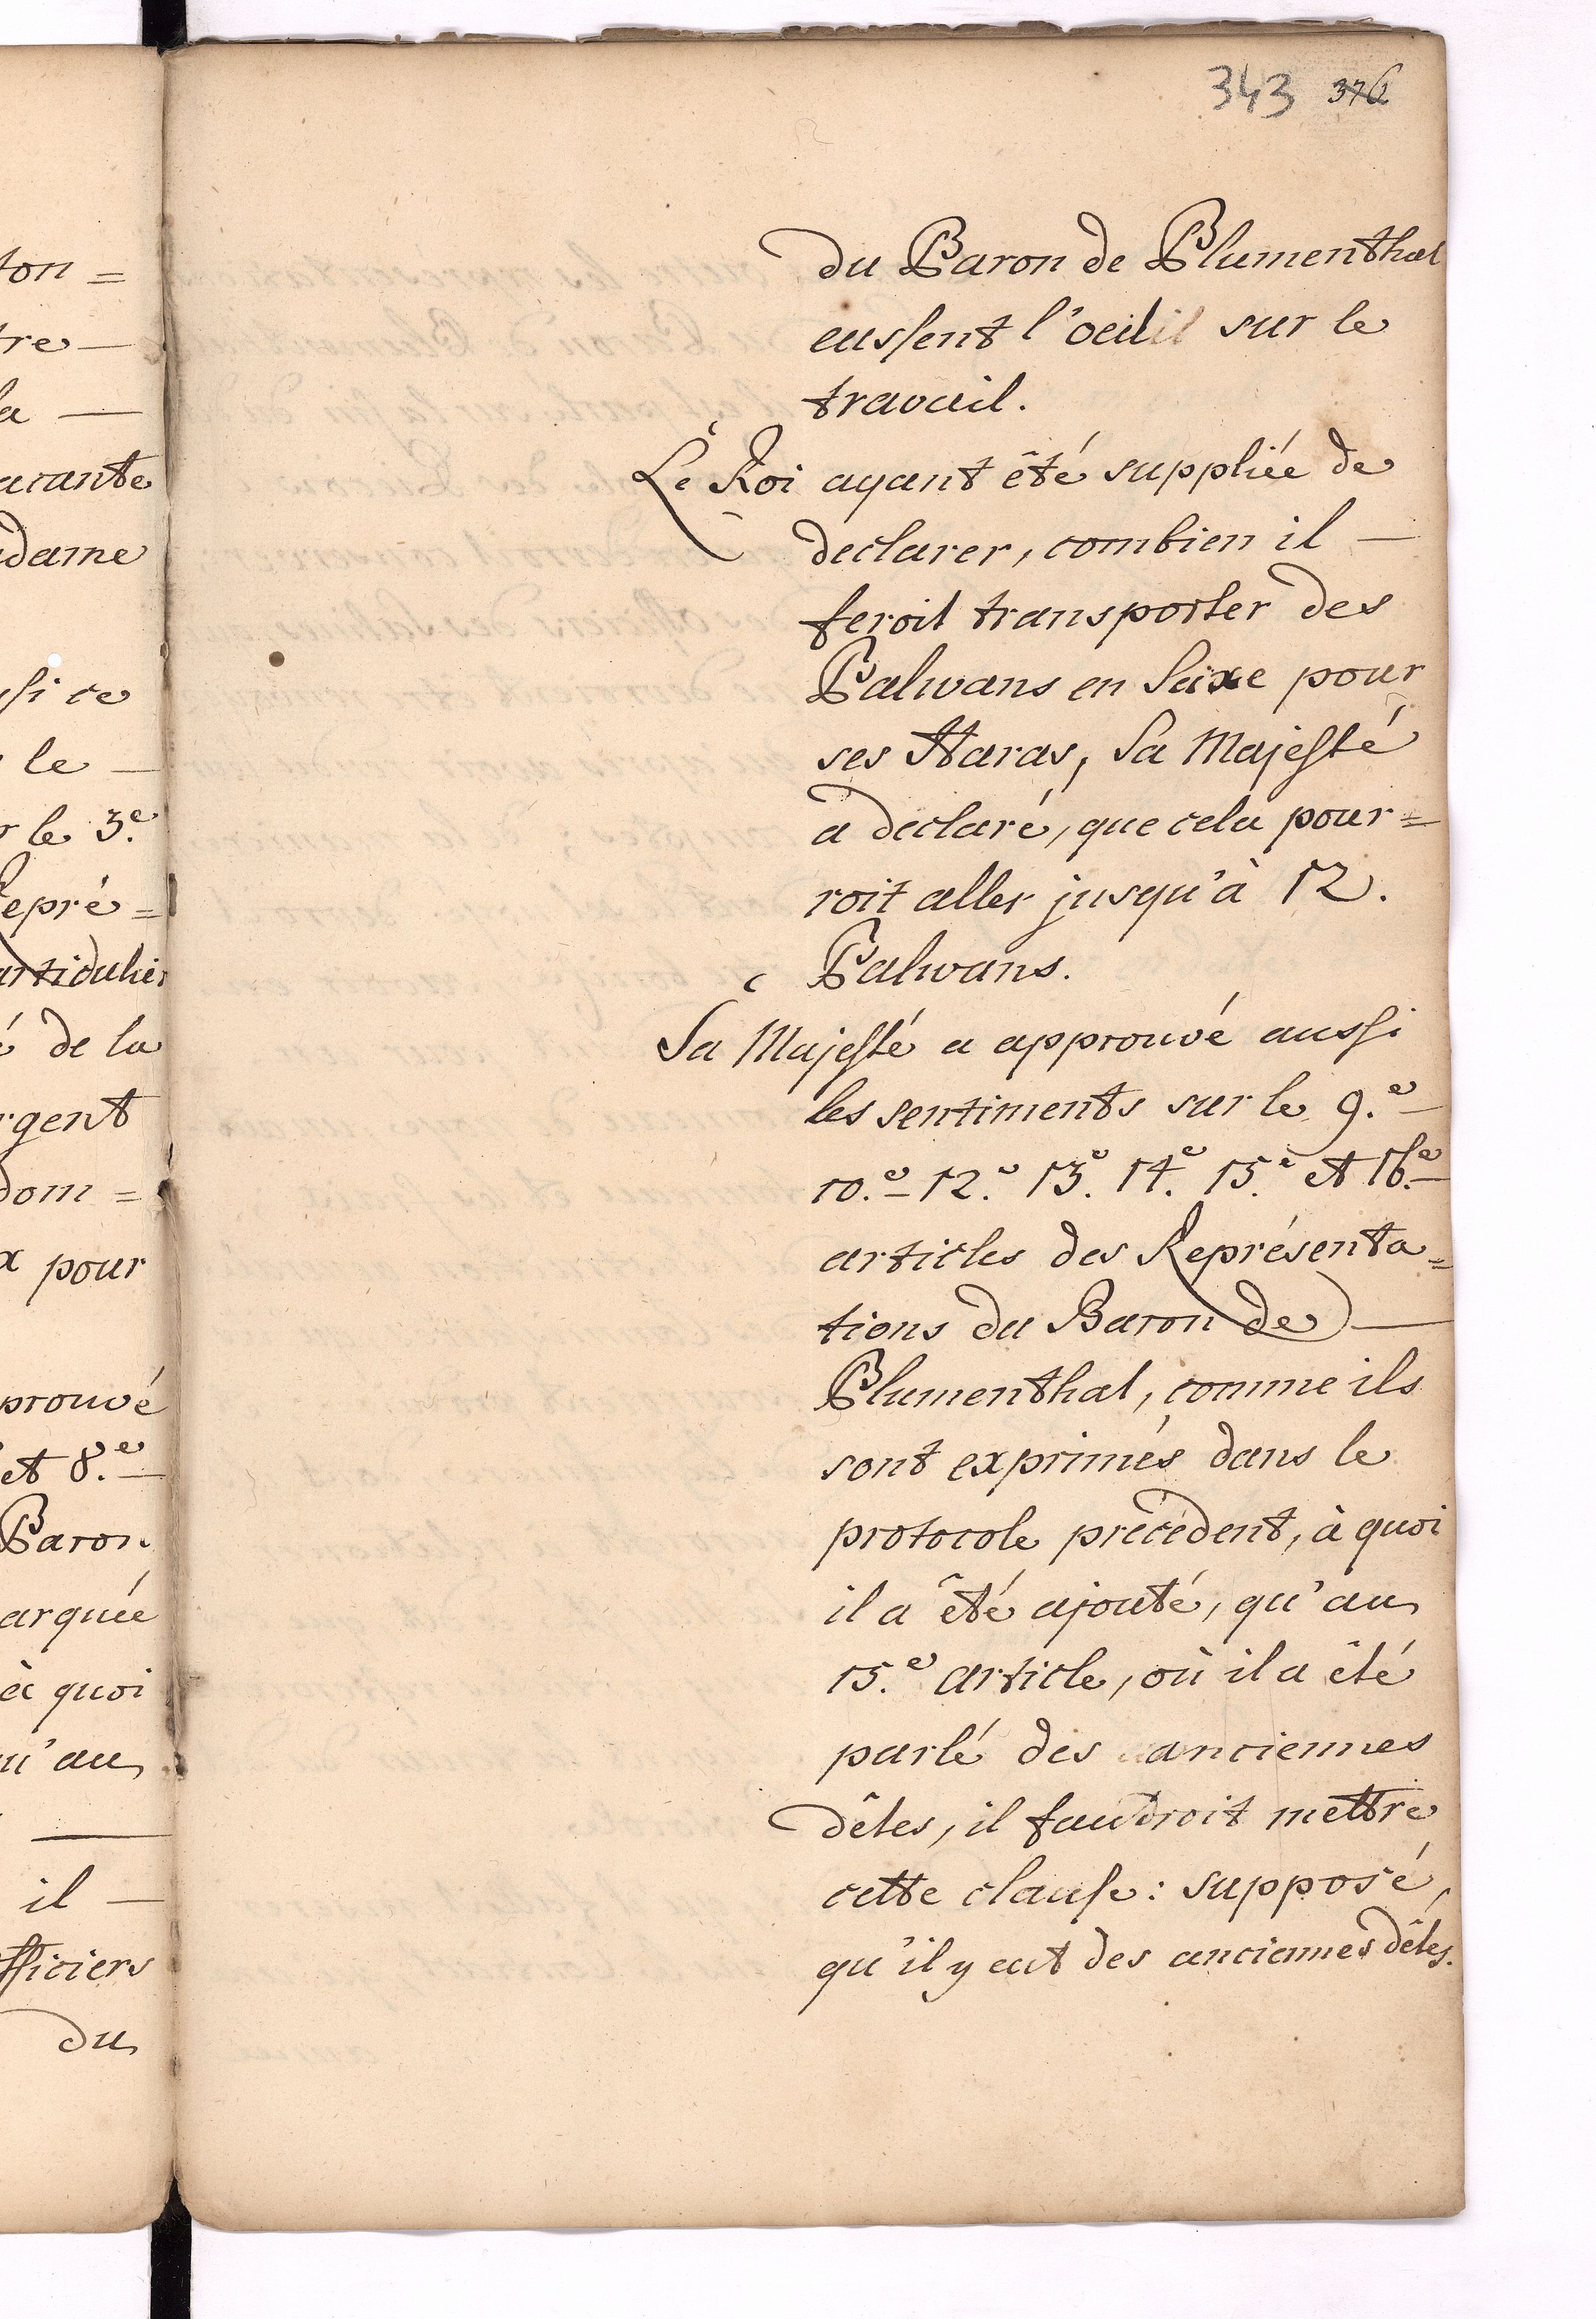 343 376
du Baron de Blumenthal
eussent l'oeil sur le
travail.
Le Roi ayant êté suppliée de
declarer, combien il —
feroit transporter des
Balwans en Saxe pour
ses Haras, Sa Majesté
a declaré, que cela pour=
roit aller jusqu'à 12.
Balwans.
Sa Majesté a approuvé aussi
les sentiments sur le 9.e
10.e 12.e 13.e 14.e 15.e et 16.e
articles des Représenta=
tions du Baron de —
Blumenthal, comme ils
sont exprimés dans le
protocole précédent, à quoi
il a êté ajouté, qu'au
15.e article, où il a êté
parlé des anciennes
dêtes, il faudroit mettre
cette clause: supposé,
qu'il y eut des anciennes dêtes.
ton=
tre —
la —
arante
adame
ssi ce
le —
r le 3.e
Repré=
articulier
é de la
rgent
dom=
x pour
prouvé
et 8.e
Baron
arquée
à quoi
u'au
il —
fficiers
du